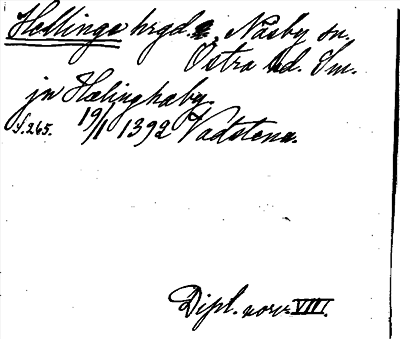 Hellinge hrgd. Näsby sn.
Östra hd. Sm.
jn Hælinghæby.
f. 265. 19/1 1392 Vadstena.
Dipl. norv. VIII.